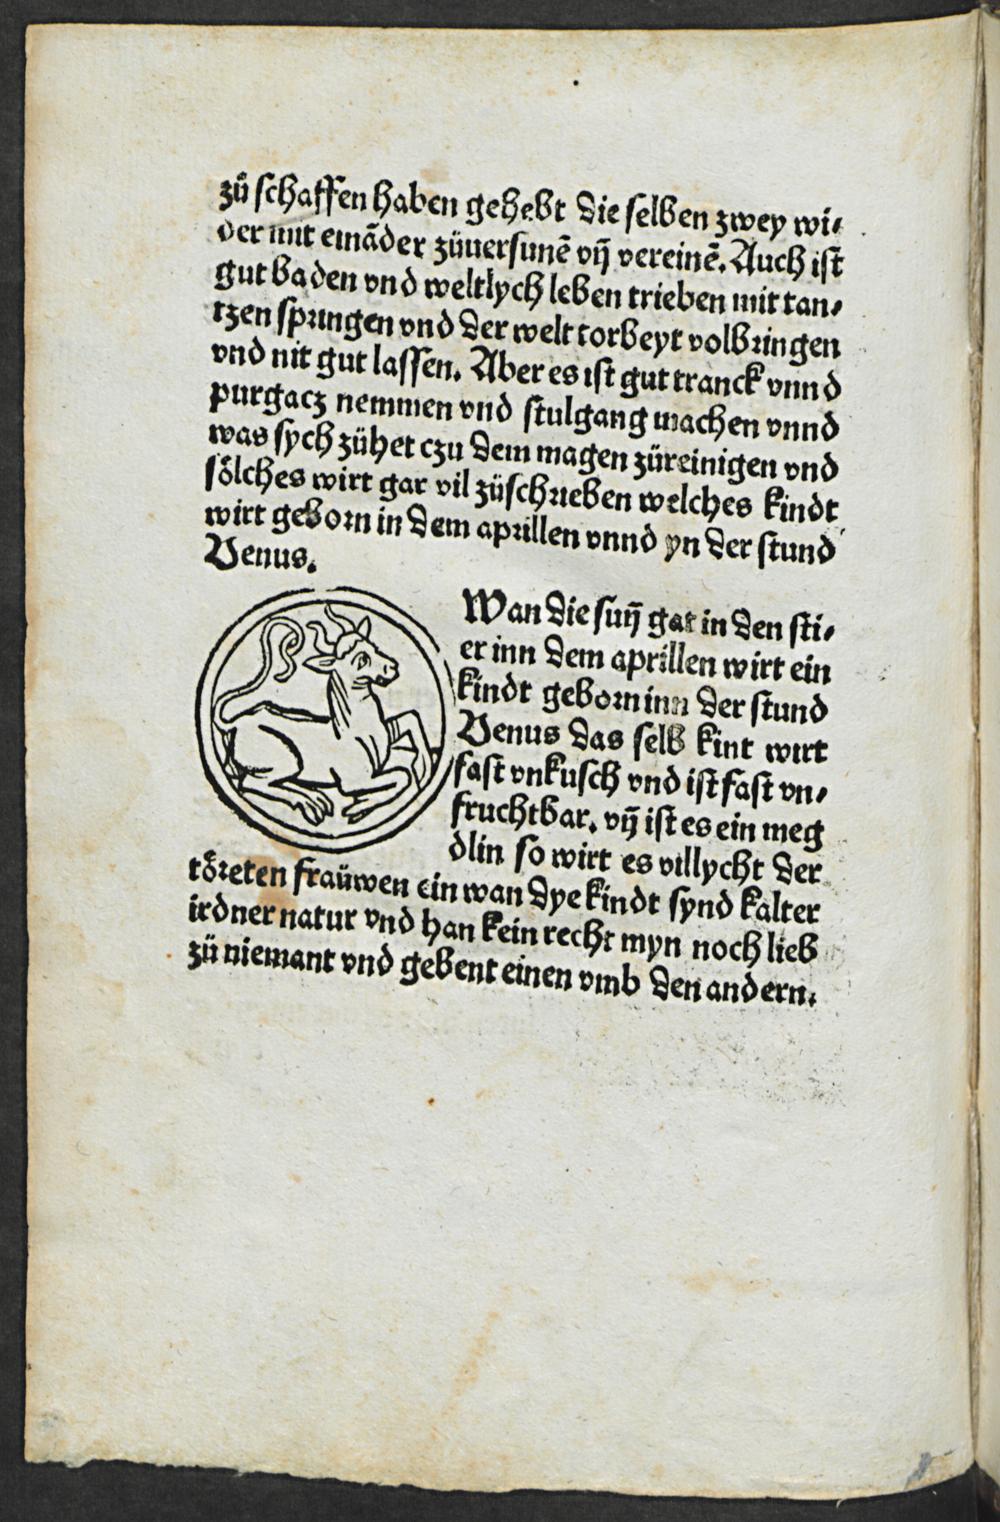 zů schaffen haben gehebt die selben zwey wi⸗
der mit einãder zůuersunẽ vñ vereinẽ. Auch ist
gut baden vnd weltlych leben trieben mit tan⸗
tzen springen vnd der welt torheyt volbringen
vnd nit gut lassen. Aber es ist gut tranck vnnd
purgacz nemmen vnd stulgang machen vnnd
was sych zühet czu dem magen zůreinigen vnd
sölches wirt gar vil zůschrieben welches kindt
wirt geborn in dem aprillen vnnd yn der stund
Venus.
Wan die suñ gat in den sti⸗
er inn dem aprillen wirt ein
kindt geborn inn der stund
Venus das selb kint wirt
fast vnkusch vnd ist fast vn⸗
fruchtbar. vñ ist es ein meg
dlin so wirt es villycht der
töreten fraüwen ein wan dye kindt synd kalter
irdner natur vnd han kein recht myn noch lieb
zů niemant vnd gebent einen vmb den andern.